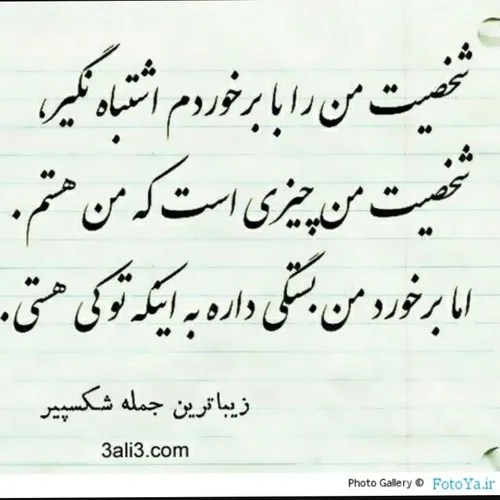 شخصیت من را با برخوردم اشتباه نگیر،
شخصیت من چیزی است که من هستم.
اما برخورد من بستگی داره به اینکه تو کی هستی.
زیباترین جمله شکسپیر
3ali3.com
Photo Gallery © FotoYa.ir